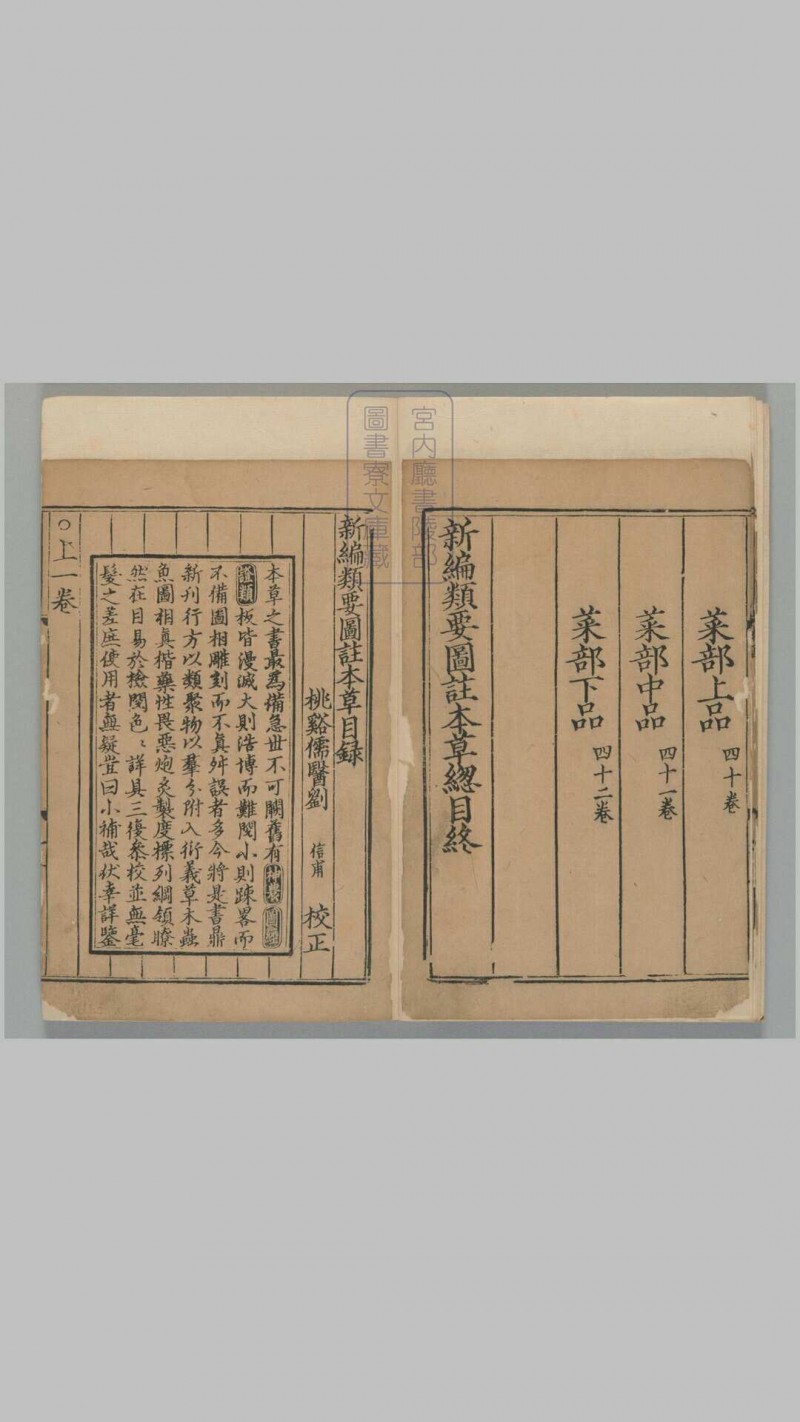 菜部上品 四十卷
菜部中品 四十一卷
菜部下品 四十二卷
新編類要圖註本草總目終
宮内廳書陵部
圖書寮文庫藏
新編類要圖註本草目録
桃谿儒醫劉 信甫 校正
本草之書最爲備急丗不可闕舊有
板皆漫滅大則浩博而難閱小則踈畧而
不備圖相雕刻而不真舛誤者多今將是書鼎
新刊行方以類聚物以羣分附入衍義草木蟲
魚圖相真楷藥性畏惡炮炙製度標列綱領瞭
然在目易於檢閱色〻詳具三復叅校並無毫
髮之差庶使用者無疑豈曰小補哉伏幸詳鑒
○上一卷